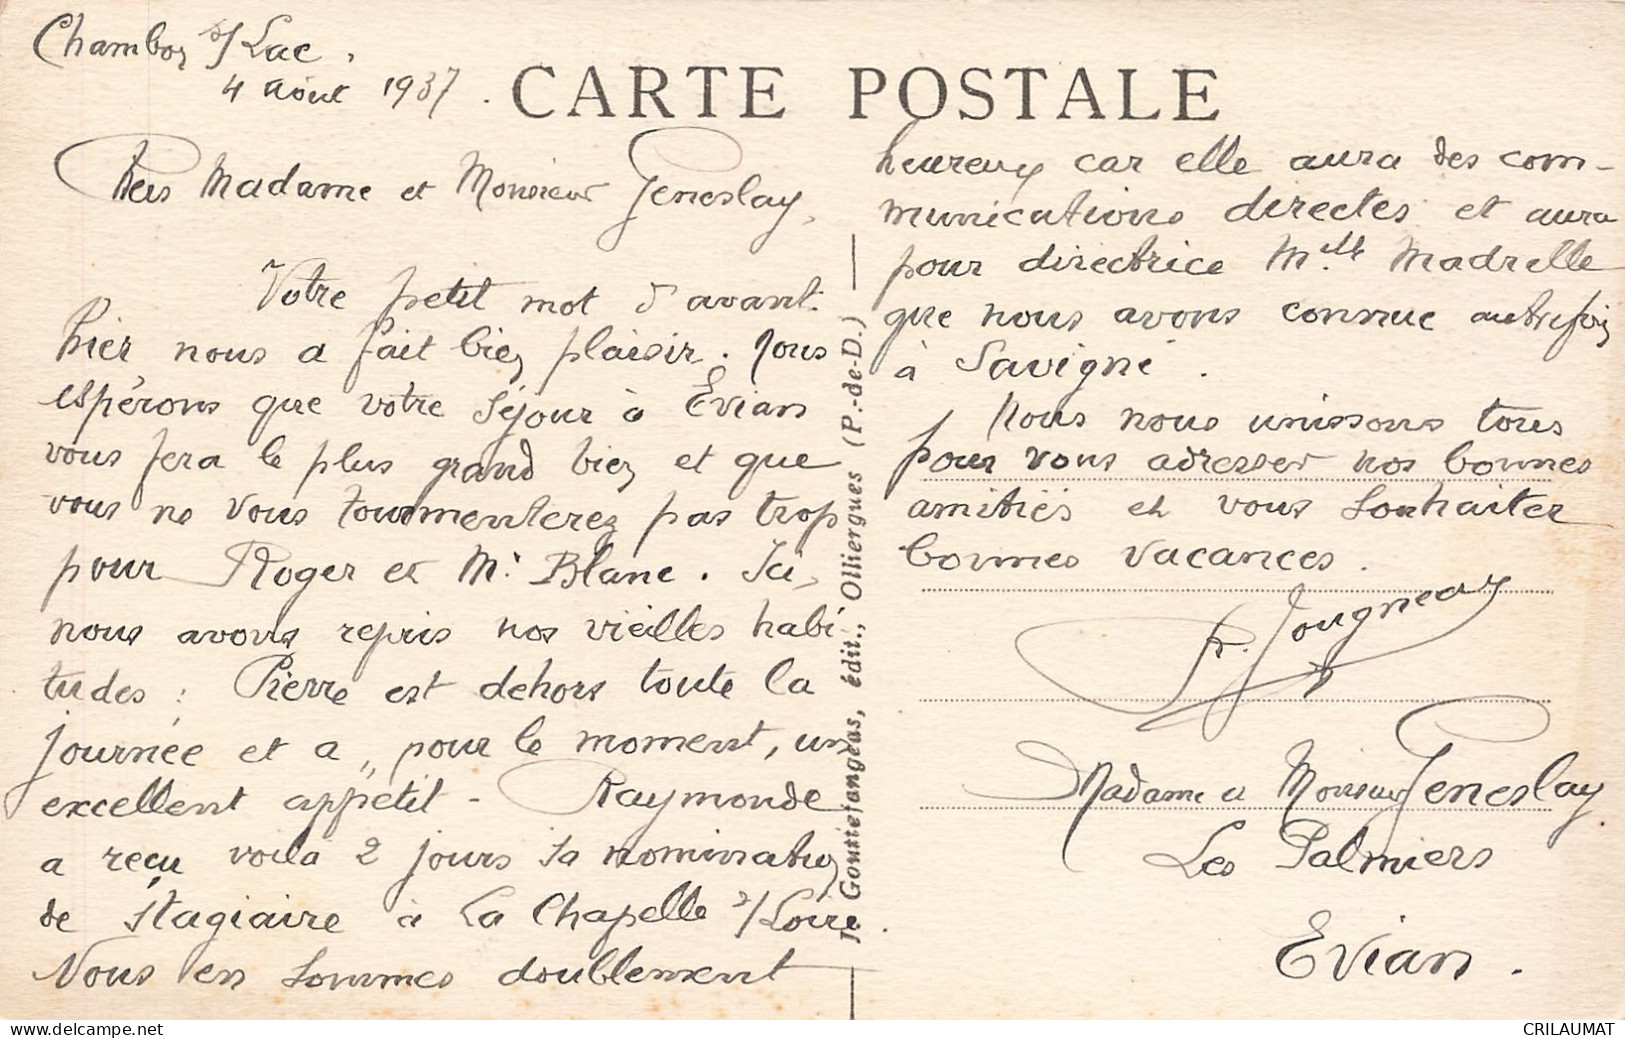 Chambon s/ Lac,
4 août 1937.
CARTE POSTALE
Chers Madame et Monsieur Geneslay,
Votre petit mot d'avant-
hier, nous a fait bien plaisir. Nous
espérons que votre séjour à Evian
vous fera le plus grand bien et que
vous ne vous tourmenterez pas trop
pour Roger et Mr Blanc. Ici,
nous avons repris nos vieilles habi-
tudes : Pierre est dehors toute la
journée et a, pour le moment, un
excellent appétit - Raymonde
a reçu voilà 2 jours sa nomination
de stagiaire à La Chapelle s/Loire.
Nous en sommes doublement
heureux car elle aura des com-
munications directes et aura
pour directrice Mlle Madrelle
que nous avons connue autrefois
à Savigné.
Nous nous unissons tous
pour vous adresser nos bonnes
amitiés et vous souhaiter
bonnes vacances.
R. Jougneau
Madame et Monsieur Geneslay
Les Palmiers
Evian.
J. Gouttefangeas, édit., Olliergues (P.-de-D.)
www.delcampe.net
CRILAUMAT